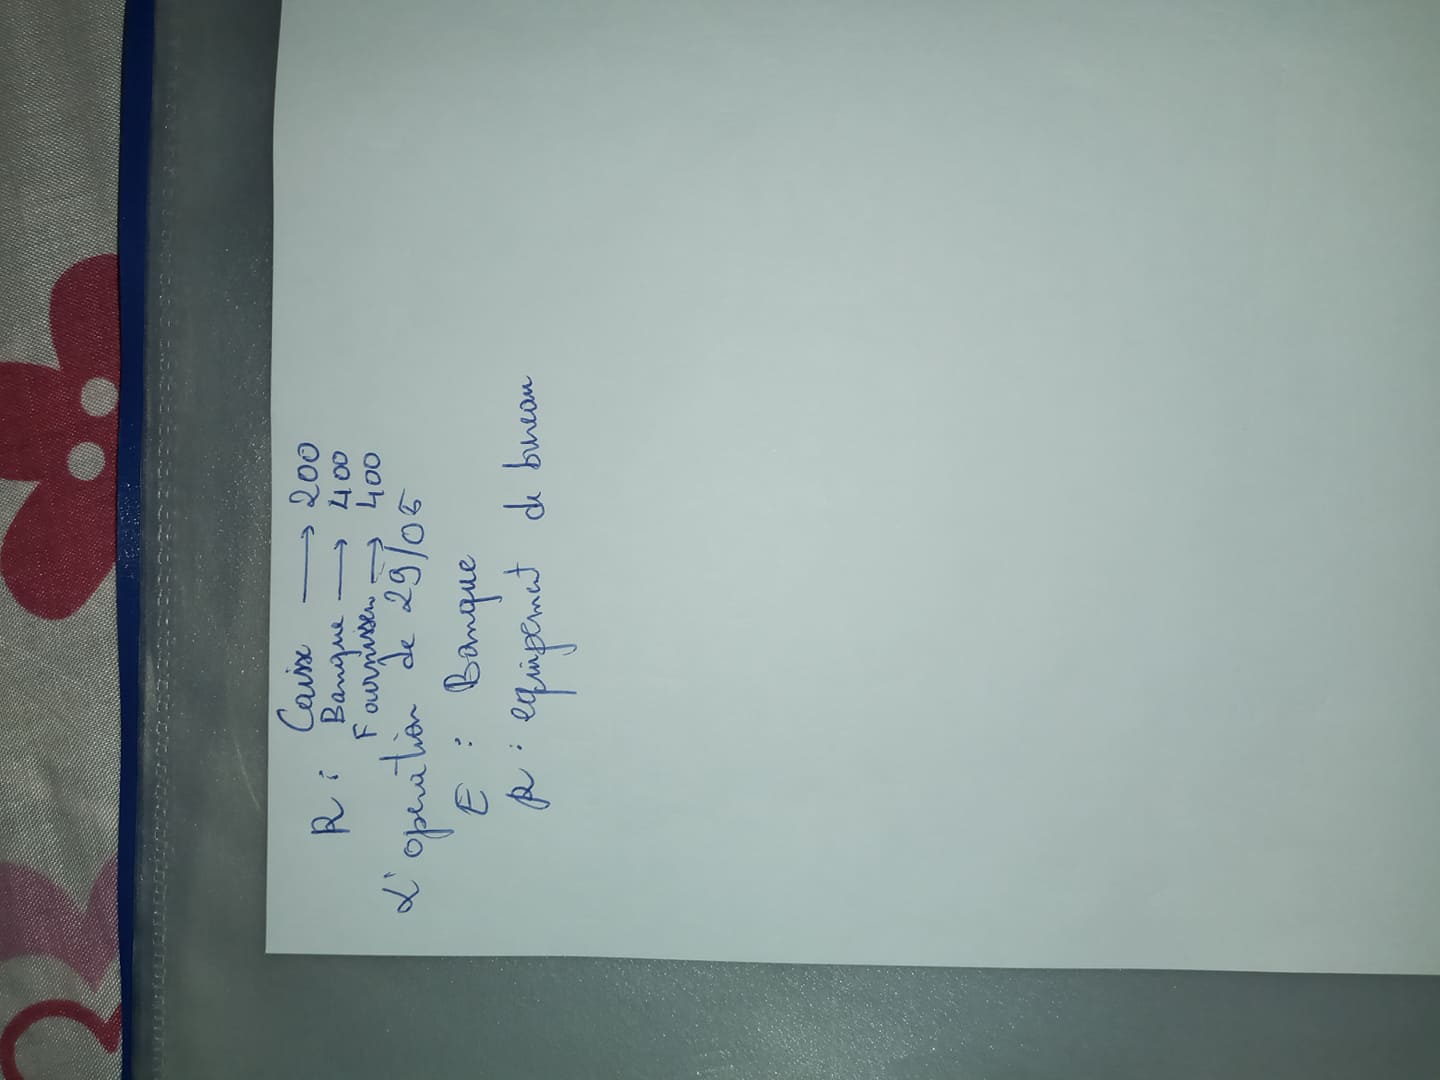 R : Caisse → 200
Banque → 400
Fournisseu → 400
L'operation de 29/05
E : Banque
R : equipement de bureau